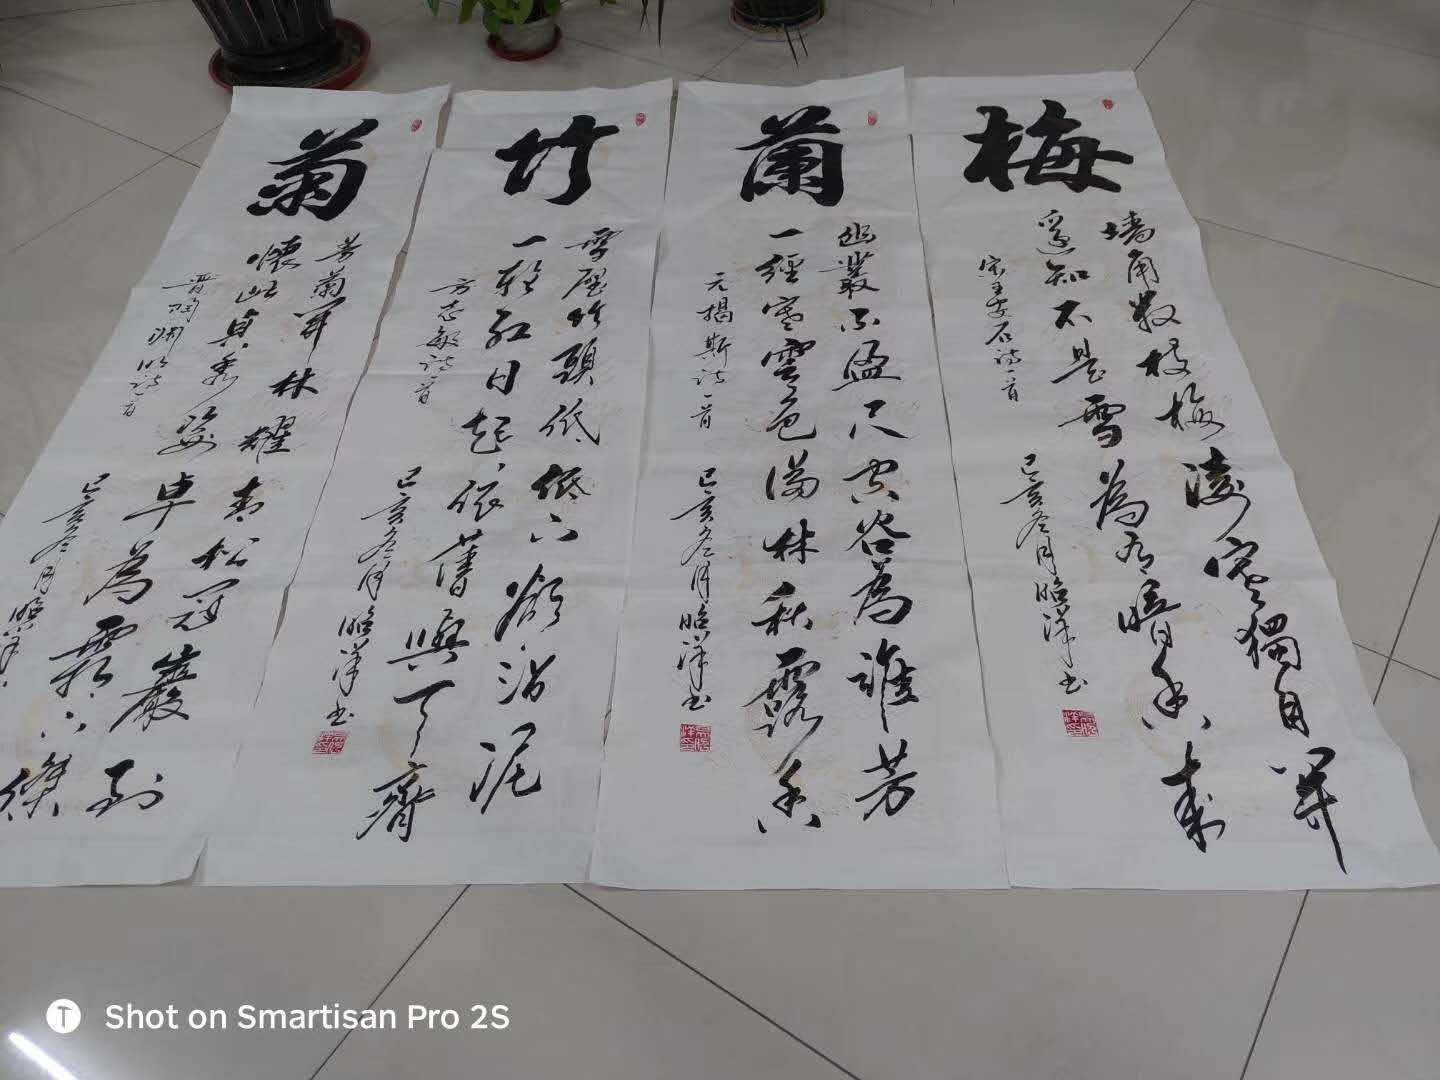 梅
墙角数枝梅凌寒獨自開
遥知不是雪為有暗香来
宋王安石诗一首
己亥冬月昭洋书
蘭
幽叢不盈尺空谷為誰芳
一經寒雲色满林秋露香
元揭斯诗一首
己亥冬月昭洋书
竹
雪壓竹頭低低下欲沾泥
一轮红日起依舊與天齊
方志敏诗一首
己亥冬月昭洋书
菊
芳菊開林耀青松冠巖列
懷此貞秀姿卓為霜下傑
晋陶渊明诗一首
己亥冬月昭洋
Shot on Smartisan Pro 2S